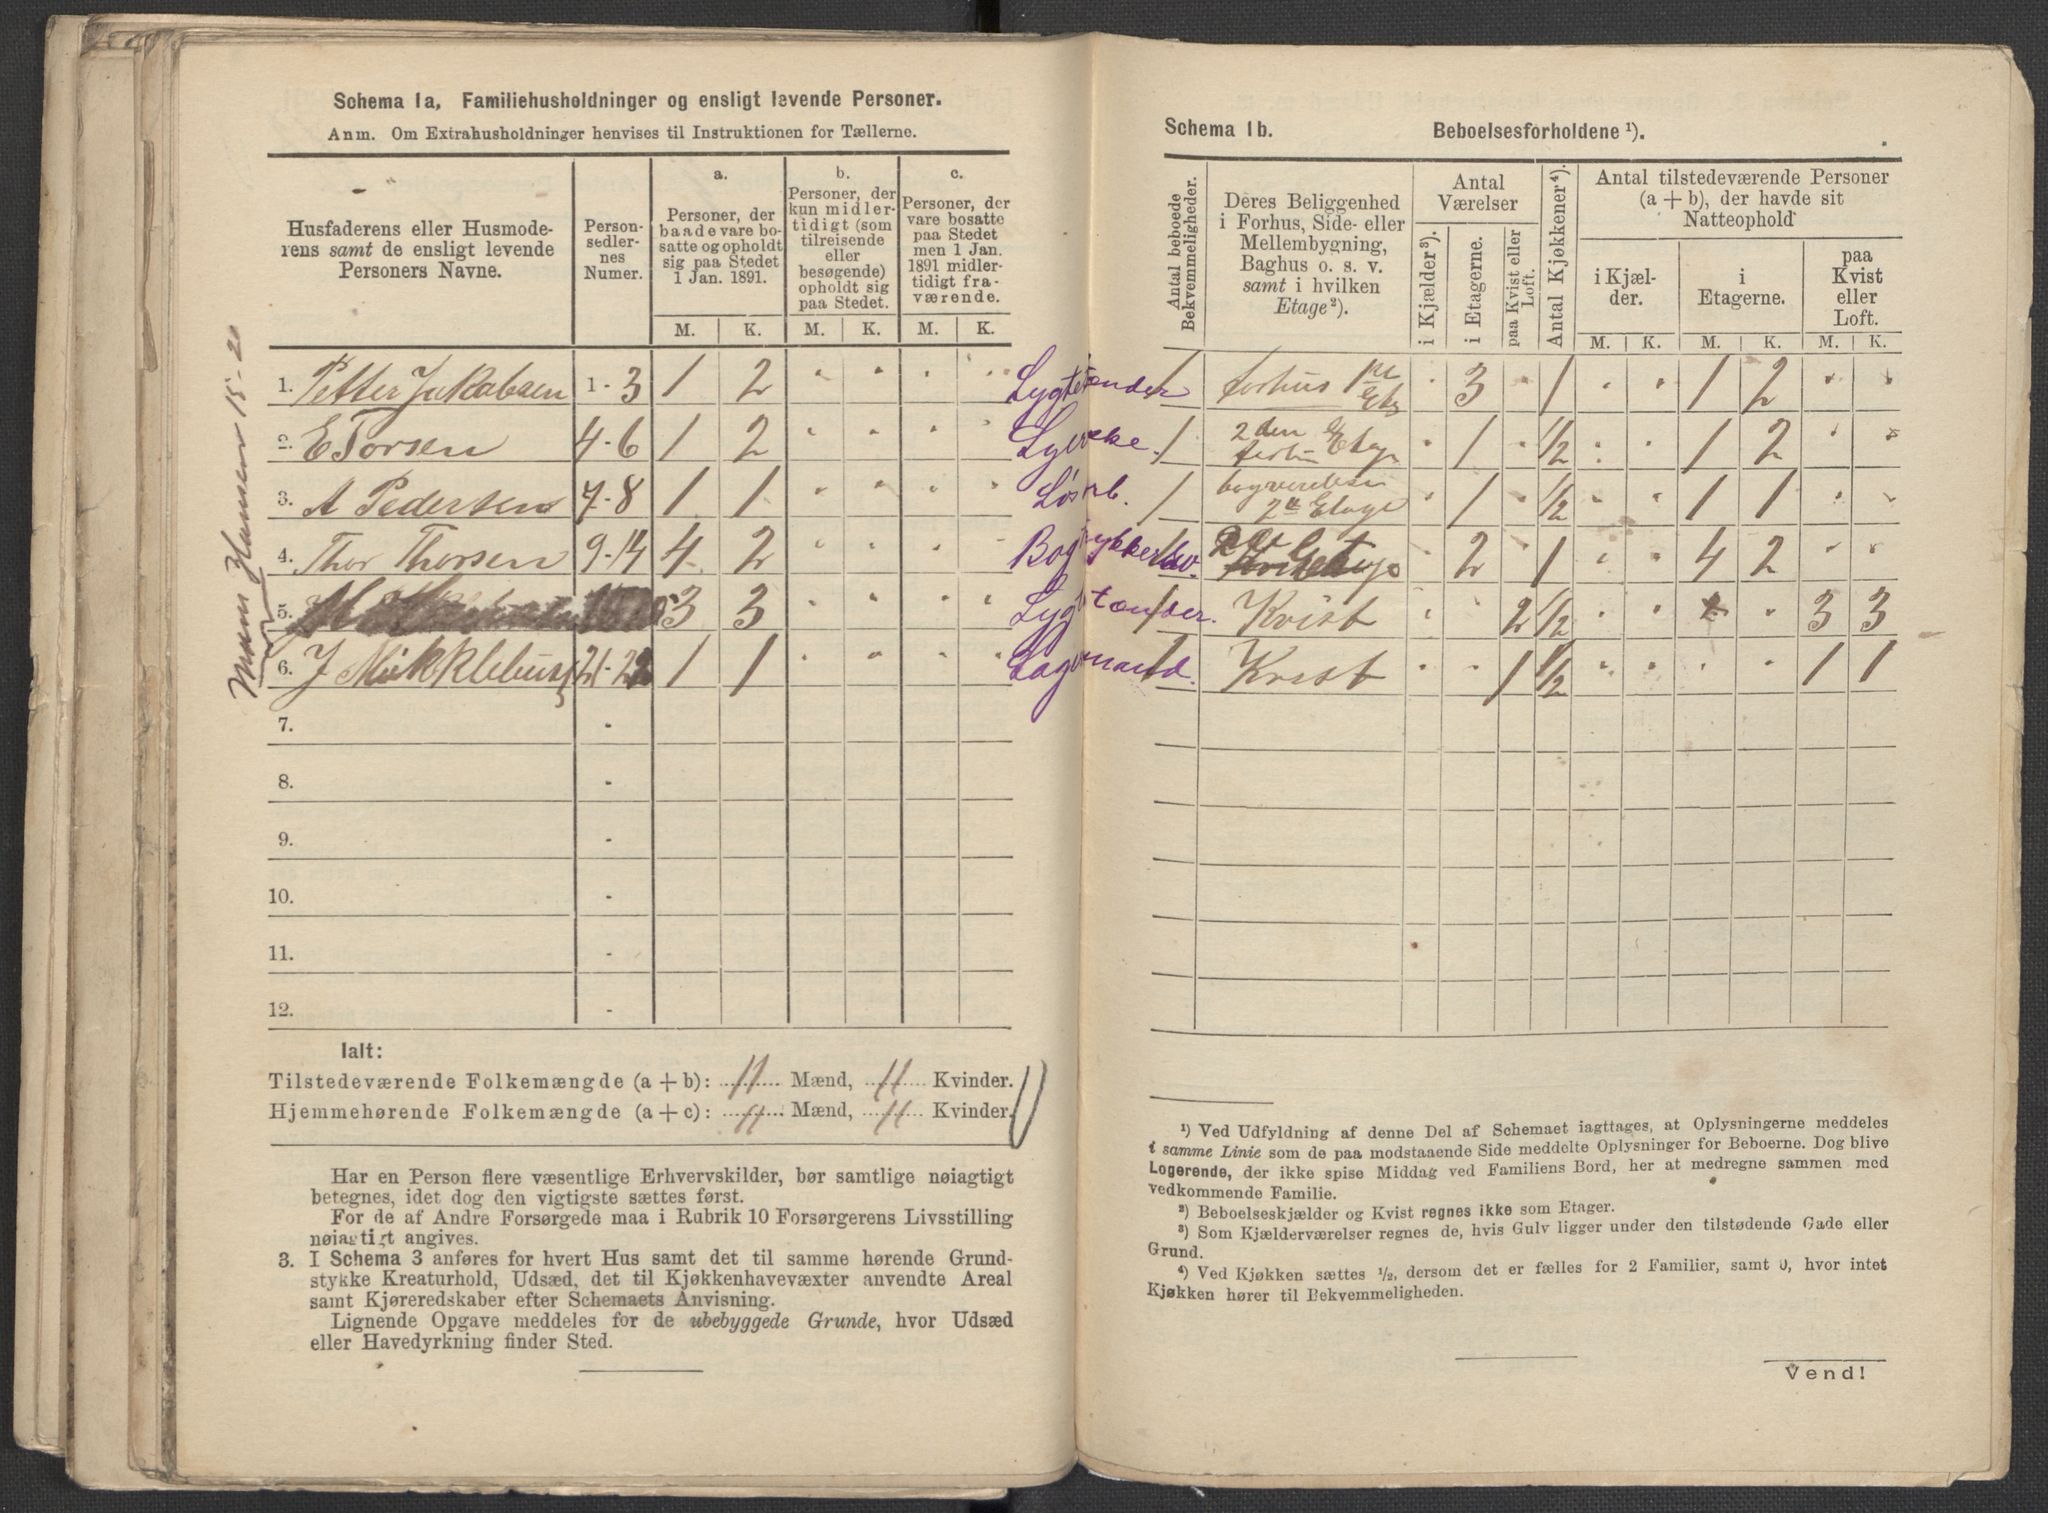 Schema 1a, Familiehusholdninger og ensligt levende Personer.
Anm. Om Extrahusholdninger henvises til Instruktionen for Tællerne.
Husfaderens eller Husmode-
rens samt de ensligt levende
Personers Navne.
Person-
sedler-
nes
Numer.
a.
Personer, der
baade vare bo-
satte og opholdt
sig paa Stedet
1 Jan. 1891.
b.
Personer, der
kun midler-
tidigt (som
tilreisende
eller
besøgende)
opholdt sig
paa Stedet.
c.
Personer, der
vare bosatte
paa Stedet
men 1 Jan.
1891 midler-
tidigt fra-
værende.
M. K. M. K. M. K.
1. Petter Jakobsen 1-3 1 2 " " " "
2. E Torsen 4-6 1 2 " " " "
3. A Pedersen 7-8 1 1 " " " "
4. Thor Thorsen 9-14 4 2 " " " "
5. 3 3 " " " "
6. J Mükklebusz 21-22 1 1 " " " "
7. -
8. -
9. -
10. -
11. -
12. -
Hansen 15-20
Ialt:
Tilstedeværende Folkemængde (a + b): 11 Mænd, 11 Kvinder.
Hjemmehørende Folkemængde (a + c): 11 Mænd, 11 Kvinder.
Har en Person flere væsentlige Erhvervskilder, bør samtlige nøiagtigt
betegnes, idet dog den vigtigste sættes først.
For de af Andre Forsørgede maa i Rubrik 10 Forsørgerens Livsstilling
nøiagtigt angives.
3. I Schema 3 anføres for hvert Hus samt det til samme hørende Grund-
stykke Kreaturhold, Udsæd, det til Kjøkkenhavevæxter anvendte Areal
samt Kjøreredskaber efter Schemaets Anvisning.
Lignende Opgave meddeles for de ubebyggede Grunde, hvor Udsæd
eller Havedyrkning finder Sted.
Schema 1b. Beboelsesforholdene ¹).
Antal beboede
Bekvemmeligheder.
Deres Beliggenhed
i Forhus, Side- eller
Mellembygning,
Baghus o. s. v.
samt i hvilken
Etage²).
Antal
Værelser
i Kjælder³).
i Etagerne.
paa Kvist eller
Loft.
Antal Kjøkkener⁴).
Antal tilstedeværende Personer
(a + b), der havde sit
Natteophold
i Kjæl-
der.
i
Etagerne.
paa
Kvist
eller
Loft.
M. K. M. K. M. K.
Lygtetænder 1 forhus 1 Etg " 3 " 1 " " 1 2 " "
1 2den Etage " 1 " 1/2 " " 1 2 " "
Løsarb. 1 2 Etage " 1 " 1/2 " " 1 1 " "
Bogtrykkerudv. 1 " 2 " 1 " " 4 2 " "
Lygtetænder. 1 Kvist " " 2 1/2 " " " 3 3
Lagermand. 1 Kvist " " 1 1/2 " " " " 1 1
¹) Ved Udfyldning af denne Del af Schemaet iagttages, at Oplysningerne meddeles
i samme Linie som de paa modstaaende Side meddelte Oplysninger for Beboerne. Dog blive
Logerende, der ikke spise Middag ved Familiens Bord, her at medregne sammen med
vedkommende Familie.
²) Beboelseskjælder og Kvist regnes ikke som Etager.
³) Som Kjælderværelser regnes de, hvis Gulv ligger under den tilstødende Gade eller
Grund.
⁴) Ved Kjøkken sættes ½, dersom det er fælles for 2 Familier, samt 0, hvor intet
Kjøkken hører til Bekvemmeligheden.
Vend!